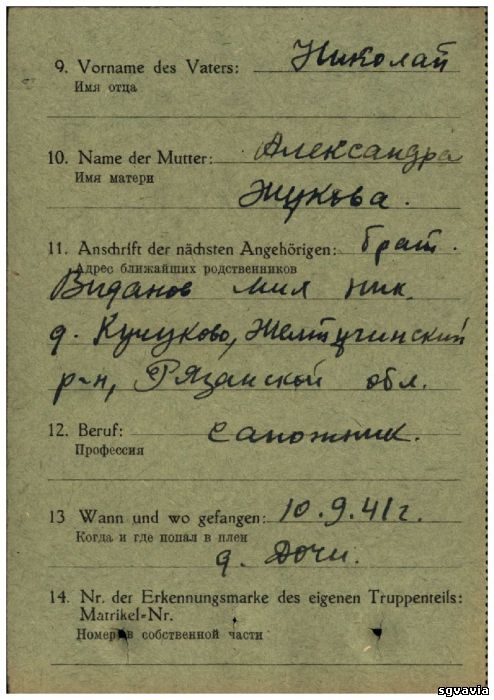 9. Vorname des Vaters: Николай
Имя отца
10. Name der Mutter: Александра
Имя матери
Жукова.
11. Anschrift der nächsten Angehörigen: брат.
Адрес ближайших родственников
Виданов Мил Ник.
д. Кучуково, Желтучинский
р-н, Рязанской обл.
12. Beruf: сапожник.
Профессия
13 Wann und wo gefangen: 10.9.41 г.
Когда и где попал в плен
д. Дочи.
14. Nr. der Erkennungsmarke des eigenen Truppenteils:
Matrikel-Nr.
Номер в собственной части
sgvavia